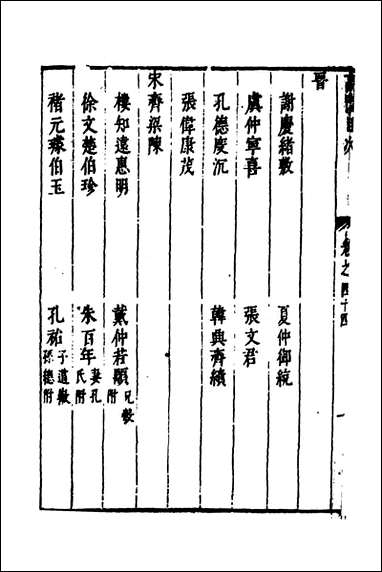 卷之四十四
一
晉
謝慶緒敷 夏仲御統
虞仲寧喜 張文君
孔德度沉 韓興齊績
張偉康茂
宋齊梁陳
樓知遠惠明 戴仲若顒 兄勃附
徐文楚伯珍 朱百年 妻孔氏附
褚元璩伯玉 孔祐 子道徽孫總附